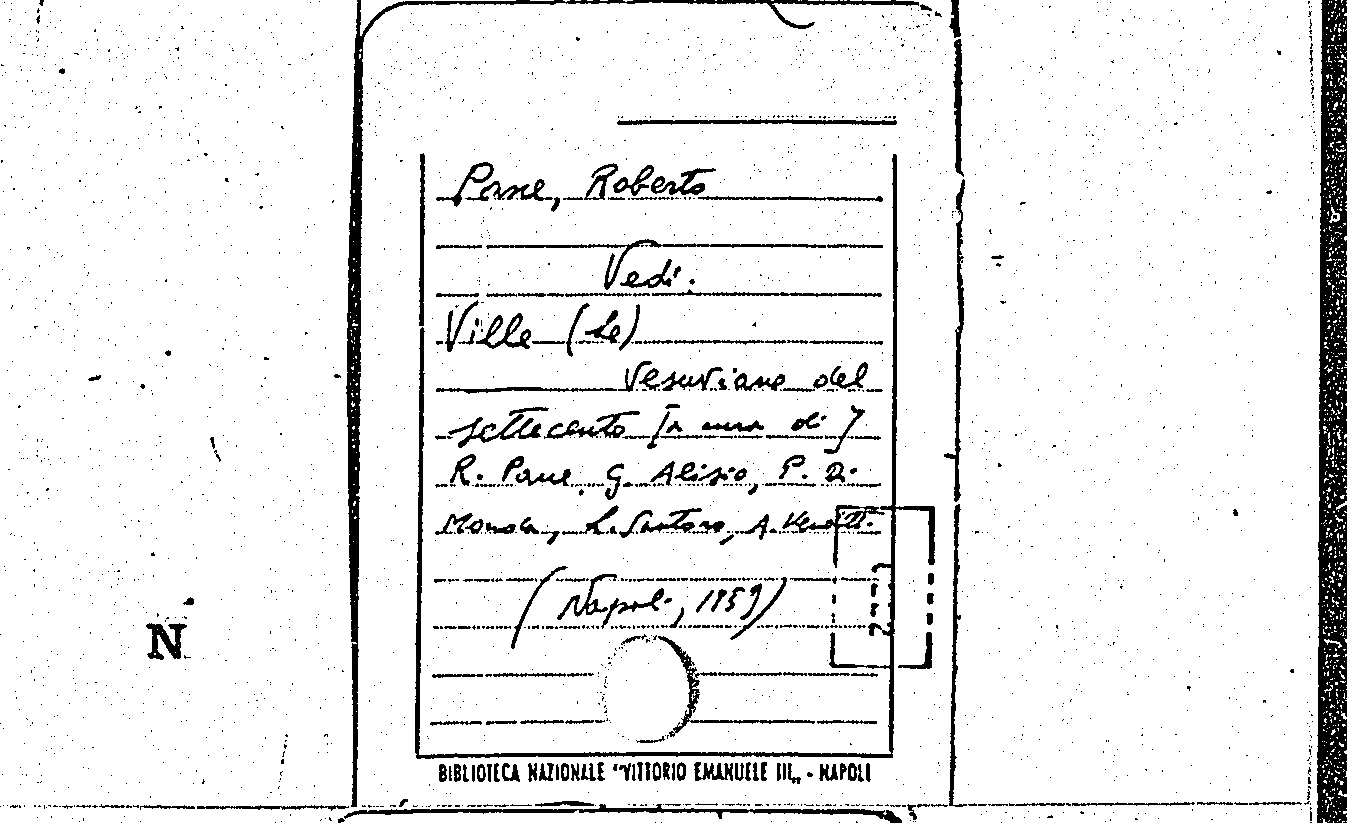 Pane, Roberto
Vedi:
Ville (Le)
Vesuviane del
settecento [a cura di]
R. Pane, G. Alisio, P. Di
Monda, L. Santoro, A. Venditti.
(Napoli, 1959)
N
BIBLIOTECA NAZIONALE "VITTORIO EMANUELE III„ - NAPOLI